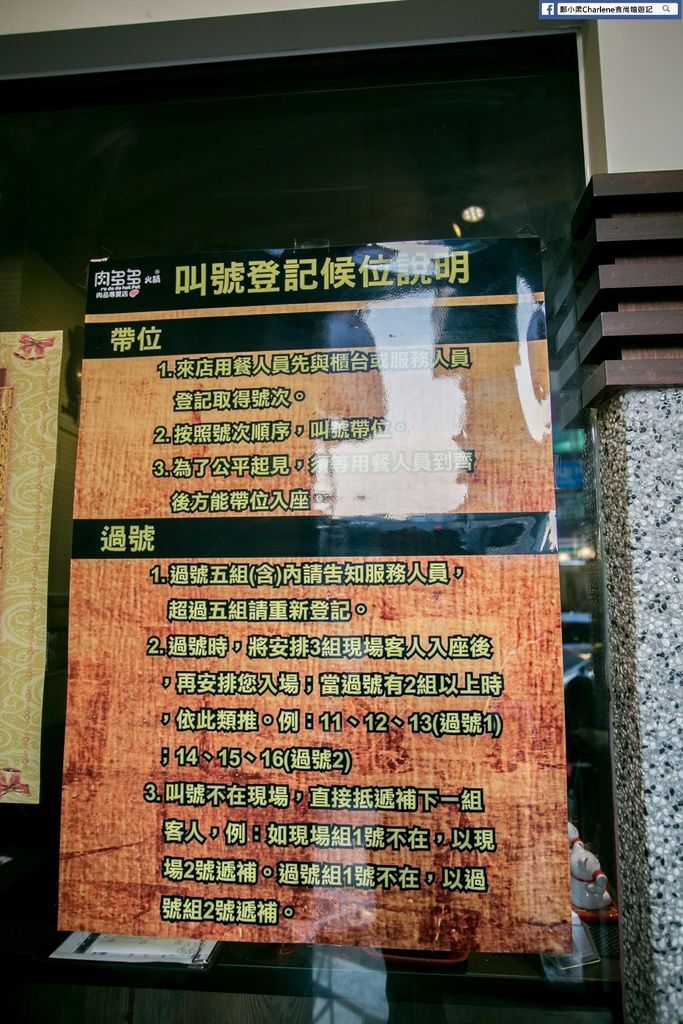 鄭小柔Charlene食尚嬉遊記
肉多多火鍋
ro do do hot Pot
肉品專賣店
叫號登記候位說明
帶位
1. 來店用餐人員先與櫃台或服務人員
登記取得號次。
2. 按照號次順序,叫號帶位。
3. 為了公平起見,須等用餐人員到齊
後方能帶位入座。
過號
1. 過號五組(含)內請告知服務人員,
超過五組請重新登記。
2. 過號時,將安排3組現場客人入座後
,再安排您入場;當過號有2組以上時
,依此類推。例:11、12、13(過號1)
;14、15、16(過號2)
3. 叫號不在現場,直接抵遞補下一組
客人,例:如現場組1號不在,以現
場2號遞補。過號組1號不在,以過
號組2號遞補。